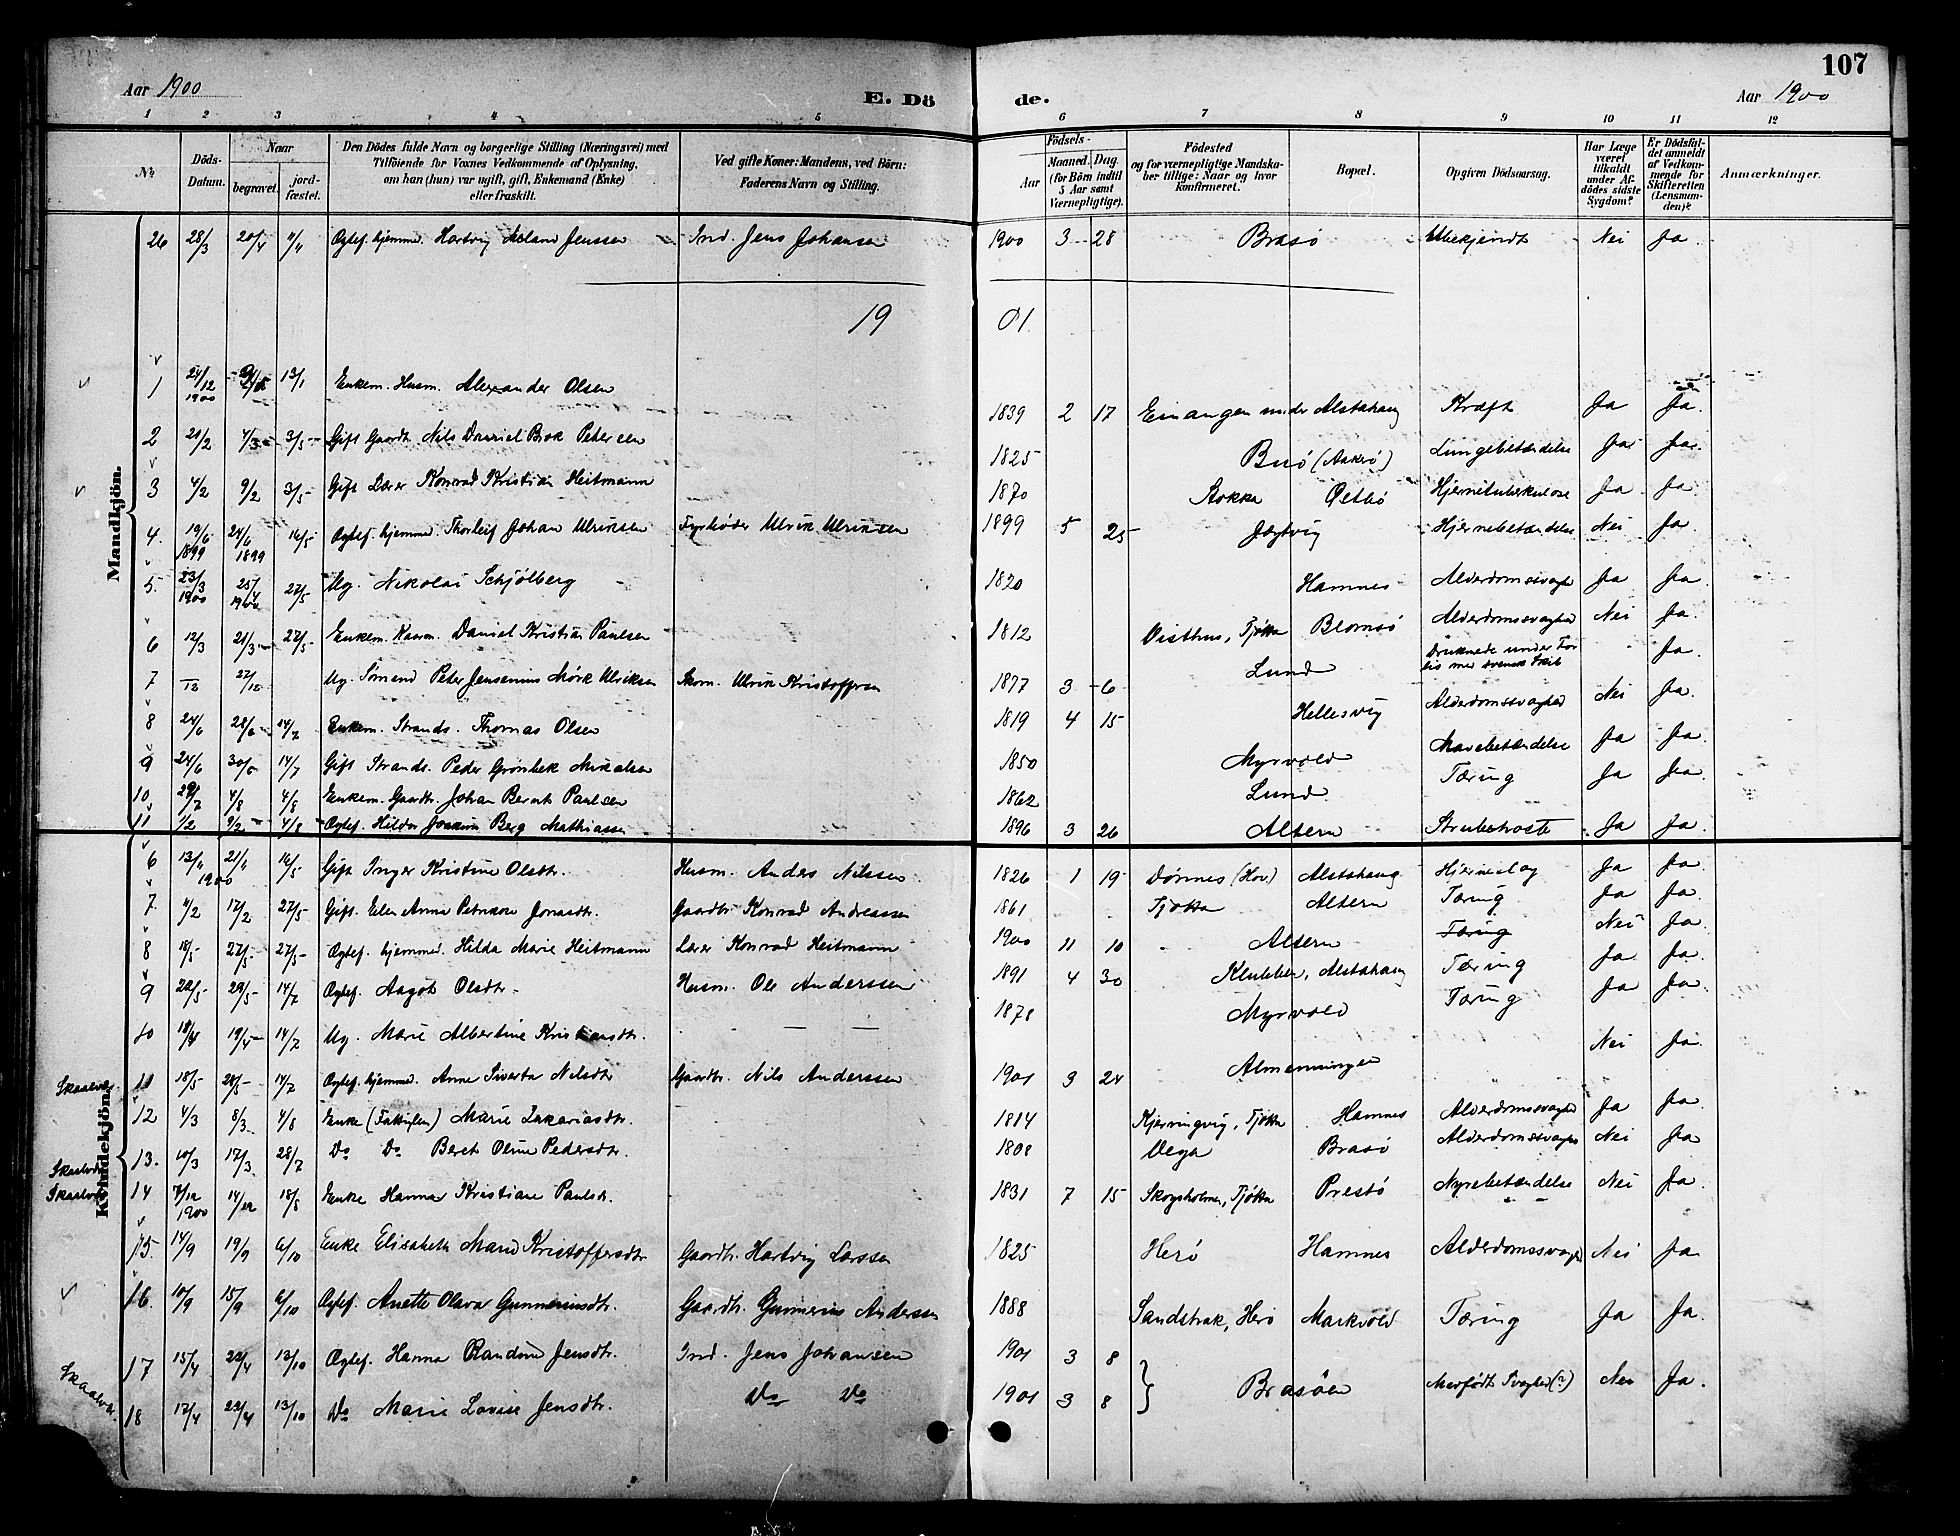 107
Aar 1900 E. Dö de. Aar 1900
1 2 3 4 5 6 7 8 9 10 11 12
No. Döds-Datum. Naar begravet. jordfæstet. Den Dödes fulde Navn og borgerlige Stilling (Næringsvei) med Tilföiende for Voxnes Vedkommende af Oplysning, om han (hun) var ugift, gift, Enkemand (Enke) eller fraskilt. Ved gifte Koner: Mandens, ved Börn: Faderens Navn og Stilling. Födsels- Aar Maaned. Dag. (for Börn indtil 5 Aar samt Værnepligtige). Födested og for værnepligtige Mandskaber tillige: Naar og hvor konfirmeret. Bopæl. Opgiven Dödsaarsag. Har Læge været tilkaldt under Afdödes sidste Sygdom? Er Dödsfaldet anmeldt af Vedkommende for Skifteretten (Lensmanden)? Anmærkninger.
Mandkjön.
26 28/3 20/4 11/4 Ogtef. hjemmed. Hartvig Meland Jenssen Ind. Jens Johansen 1900 3 28 Brasö Ubekjendt Nei Ja
19 01.
1 24/12 1900 13/1 Enkem. Husm. Alexander Olsen 1839 2 17 Einangen under Alstahaug Kræft Ja Ja.
2 21/2 4/3 3/5 Gift Gaardb. Nils Daniel Brok Petersen 1825 Buö (Aakvö) Lungebetændelse Ja Ja.
3 4/2 9/2 3/5 Gift Lærer Konrad Kristian Heitmann 1870 Stokka Hjernetuberkulose Ja Ja.
4. 19/6 1899 24/6 1899 16/5 Ogtef. hjemmed. Thorleif Johan Ulriksen Fyrböder Ulrik Ulriksen 1899 5 25 Jægtvig Hjernebetændelse Nei Ja
5. 23/3 1900 25/4 1900 27/5 Ug. Nikolai Schjölberg 1820 Hamnes Alderdomssvaghed Ja Ja.
6 12/3 21/3 27/5 Enkem. Daniel Kristian Paulsen 1812 Visthus, Tjötta Blomsö Alderdomssvaghed Nei Ja.
7 /12 27/12 Ug. Sömand Peter Jensenius Mörk Ulriksen Skom. Ulrik Kristoffersen 1877 3 6 Lund Druknede under Forlis med svensk Skib Ja.
8 24/6 28/6 14/7 Enkem. Strands. Thomas Olsen 1819 4 15 Hellesvig Alderdomssvaghed Nei Ja.
9 24/6 30/6 14/7 Gift Strands. Peder Grönbek Mikalsen 1850 Myrvold Mavebetændelse Ja Ja.
10 29/7 4/8 4/8 Enkem. Gaardb. Johan Bernt Paulsen 1862 Lund Tæring Ja Ja.
11 1/2 9/2 4/8 Ogtef. Hildor Joakim Berg Mathiassen 1896 3 26 Altern Strubehoste Ja Ja.
Kvindekjön.
6 13/11 1900 21/11 16/5 Gift Inger Kristine Olsdtr. Husm. Anders Nilssen 1826 1 19 Dönnes (Hov.) Alstahaug Hjerneslag Ja Ja
7. 4/2 17/2 27/5 Gift. Elen Anna Petrikke Jonasdtr. Gaardbr. Konrad Andreassen 1861 Tjötta Altern Tæring Ja Ja.
8 18/5 27/5 27/5 Ogtef. hjemmed. Hilda Marie Heitmann Lærer Konrad Heitmann 1900 11 10 Altern Tæring Nei Ja
9 22/5 29/5 14/7 Ogtef. Aagot Olsdtr. Husm. Ole Anderssen 1891 4 30 Klubben, Alstahaug Tæring Ja Ja.
10 18/4 19/4 14/7 Ug. Marie Albertine Kristiansdtr. — — 1878 Myrvold Tæring Ja Ja.
Skaalvær. 11 18/5 28/5 14/7 Ogtef. hjemmed. Anne Siverta Nilsdtr Gaardbr. Nils Anderssen 1901 3 24 Almenningen Nei Ja.
12 4/3 8/3 4/8 Enke (Fattiglem) Marie Zakariasdtr. 1814 Kjerringvig, Tjötta Hamnes Alderdomssvaghed Ja Ja.
Skaalvær 13. 10/3 17/3 28/7 Do Do Beret Oline Pedersdtr. 1808 Vega Brasö Alderdomssvaghed Nei Ja
Skaalvær 14 7/12 1900 14/12 18/8 Enke Hanna Kristiane Paulsdtr. 1831 7 15 Skogsholmen, Tjötta Prestö Nyrebetændelse Nei Ja.
15 14/9 19/9 6/10 Enke Elisabeth Marie Kristoffersdtr Gaardbr. Hartvig Larssen 1825 Herö Hamnes Alderdomssvaghed Nei Ja
16. 10/9 15/9 6/10 Ogtef. Anette Olava Gunneriusdtr. Gaardbr. Gunnerius Anderssen 1888 Sandstrak, Herö Markvold Tæring Ja Ja.
Skaalvær. 17 15/4 22/4 13/10 Ogtef. Hanna Randine Jensdtr. Ind. Jens Johansen 1901 3 8 } Brasöen Medfödt Svaghed (?) Nei Ja.
18 17/4 22/4 13/10 Do Marie Lovise Jensdtr. Do Do 1901 3 8